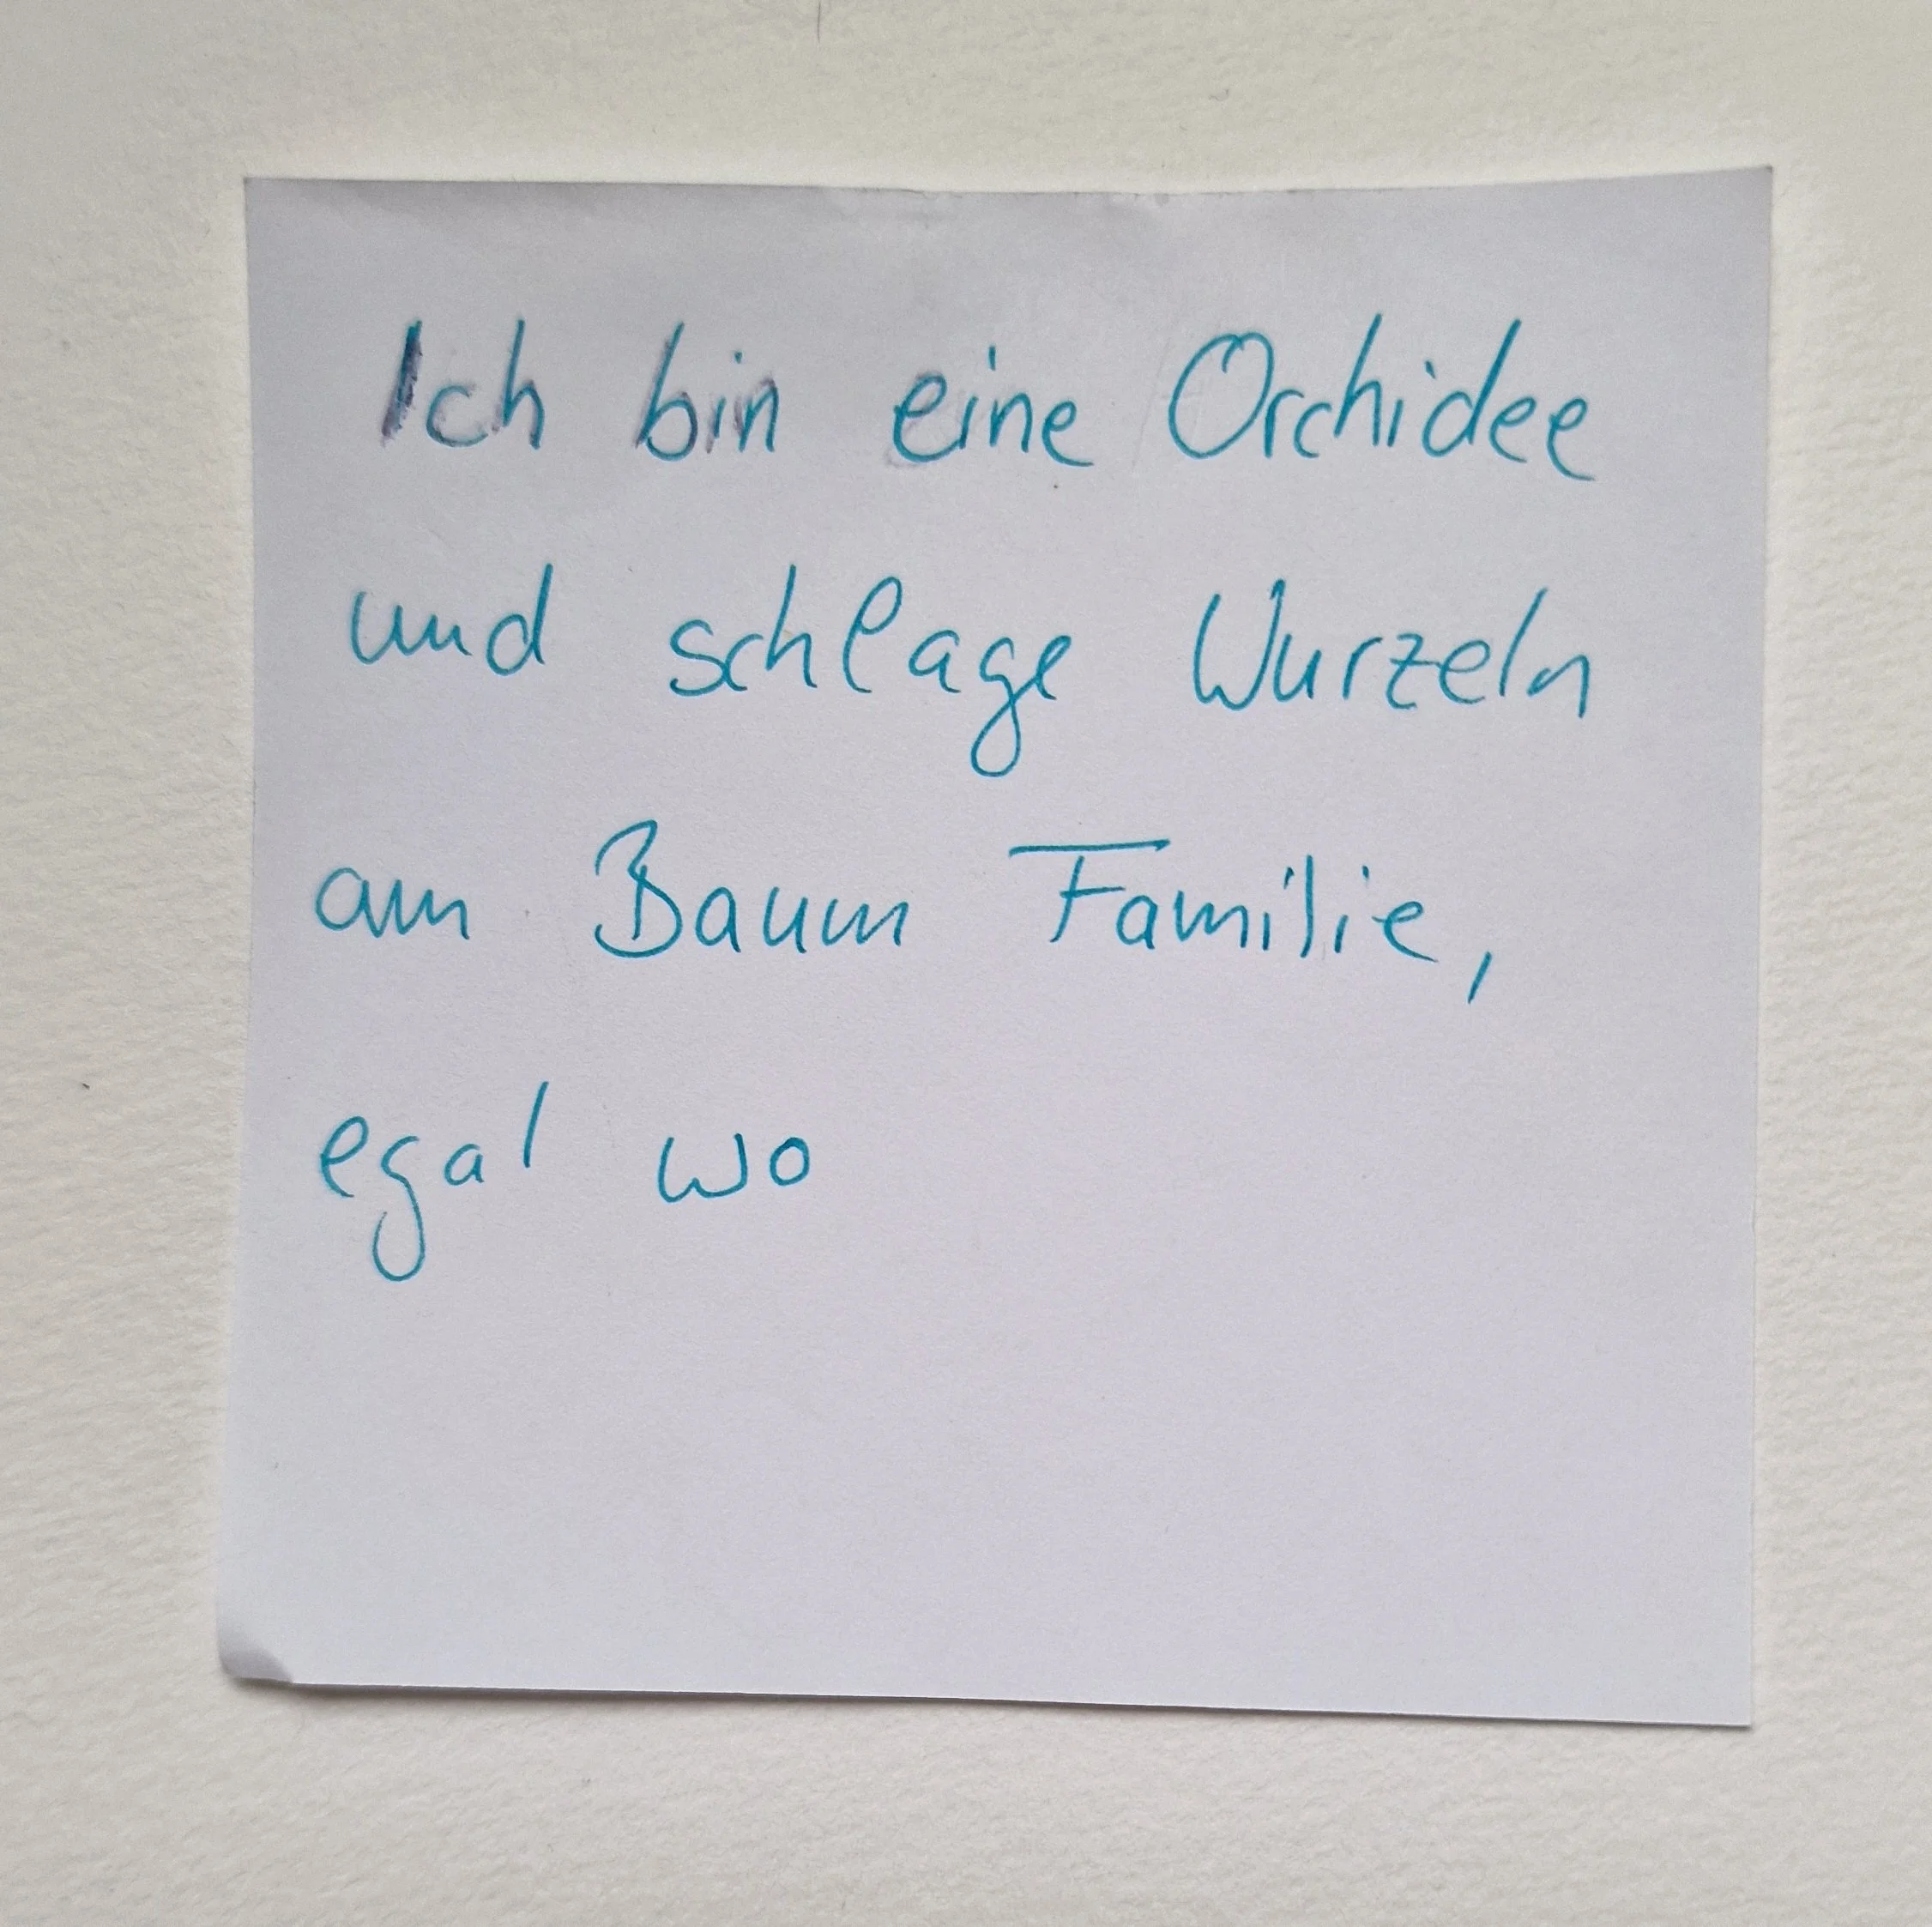 Ich bin eine Orchidee
und schlage Wurzeln
am Baum Familie,
egal wo